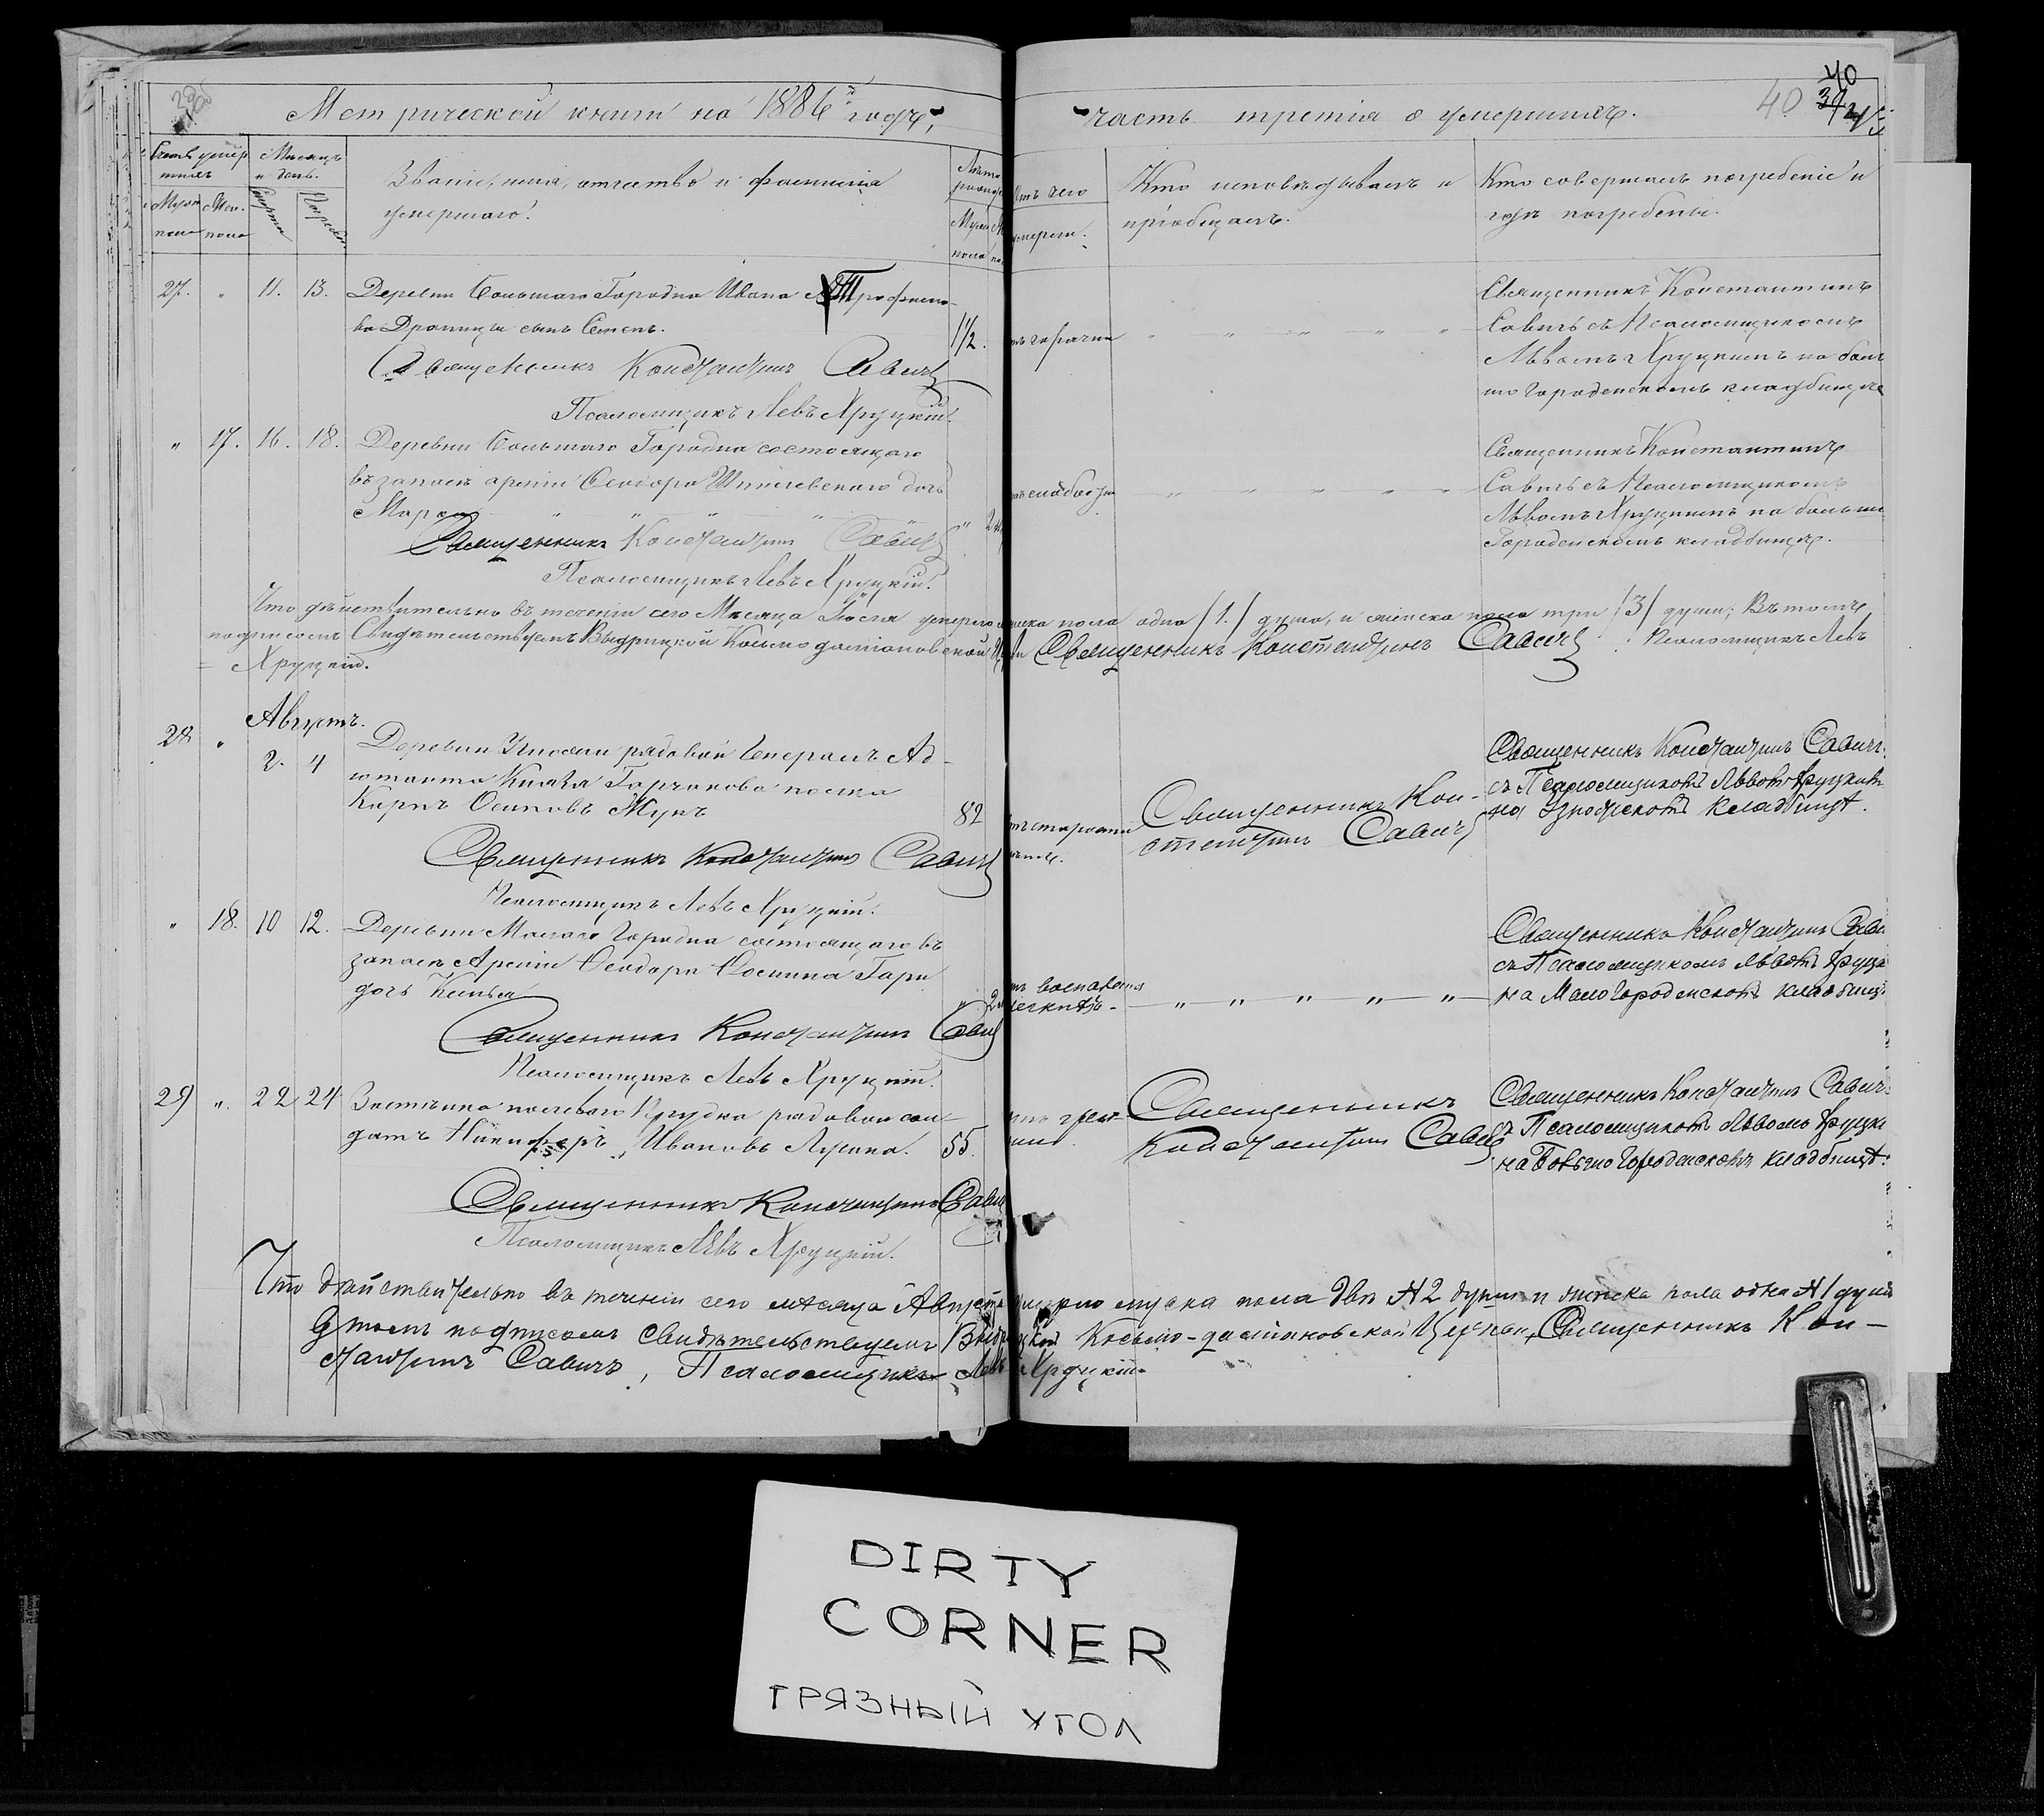 Метрической книги на 1886й годъ,
часть третія о умершихъ.
40
40
39
Счетъ умер
шихъ
Мѣсяцъ
и день.
Званіе, имя, отчество и фамилія
умершаго.
Лѣта
Отъ чего
умерли.
Кто исповѣдывалъ и
пріобщалъ.
Кто совершалъ погребеніе и
гдѣ погребены.
Муж.
пола
Жен.
пола
Смерти
Погребен.
Муж
пола
27. " 11. 13. Деревни Большаго Городна Ивана Трофимо-
ва сынъ Семенъ. 1½.
Священникъ Константинъ Савичъ
Псаломщикъ Левъ Хруцкій.
Священникъ Константинъ
Савичъ съ Псаломщикомъ
Львомъ Хруцкимъ на Боль
шо Городенскомъ кладбище
" 17. 16. 18. Деревни Большаго Городна состоящаго
въ запасѣ арміи Ѳеодора дочь
Священникъ Константинъ Савичъ
Псаломщикъ Левъ Хруцкій.
слабости " " " " "
Священникъ Константинъ
Савичъ съ Псаломщикомъ
Львомъ Хруцкимъ на больши
Городенскомъ кладбищѣ.
Что дѣйствительно въ теченіи сего Мѣсяца Іюля умерло пола одна /1./ душа, и женска пола три /3/ души; Въ томъ
подписомъ Свидѣтельствуемъ Выдрицкой Косьмо даміановской Священникъ Константинъ Савичъ. Псаломщикъ Левъ
Хруцкій.
Августъ.
28 " 2. 4 Деревни рядовой Генералъ Ад-
ютанта Князя Горчакова полка
Карпъ Осиповъ Жукъ 82
Священникъ Константинъ Савичъ
Псаломщикъ Левъ Хруцкій.
Священникъ Кон-
стантинъ Савичъ
Священникъ Константинъ Савичъ
съ Псаломщикомъ Львомъ Хруцкимъ
на кладбищѣ.
" 18. 10 12. Деревни Малаго Городна состоящаго въ
запасѣ Арміи Ѳеодора Осипова
дочь
Священникъ Константинъ Савич
Псаломщикъ Левъ Хруцкій.
" " " " "
Священникъ Константинъ Сави
съ Псаломщикомъ Львомъ Хруцк
на Мало Городенскомъ кладбищ.
29 " 22 24 рядовой сол-
датъ Никифоръ Ивановъ 55.
Священникъ Константинъ Савич
Псаломщикъ Левъ Хруцкій.
Священникъ
Константинъ Савич
Священникъ Константинъ Савичъ
съ Псаломщикомъ Львомъ Хруцки
на Большо Городенскомъ кладбищѣ.
Что дѣйствительно въ теченіи сего мѣсяца Августа умерло мужска пола двѣ № 2 души и женска пола одна № 1 душа
въ томъ подписомъ свидѣтельствуемъ Выдрицкой Косьмо-даміановской Церкви, Священникъ Кон-
стантинъ Савичъ, Псаломщикъ Левъ Хруцкій
DIRTY
CORNER
ГРЯЗНЫЙ УГОЛ